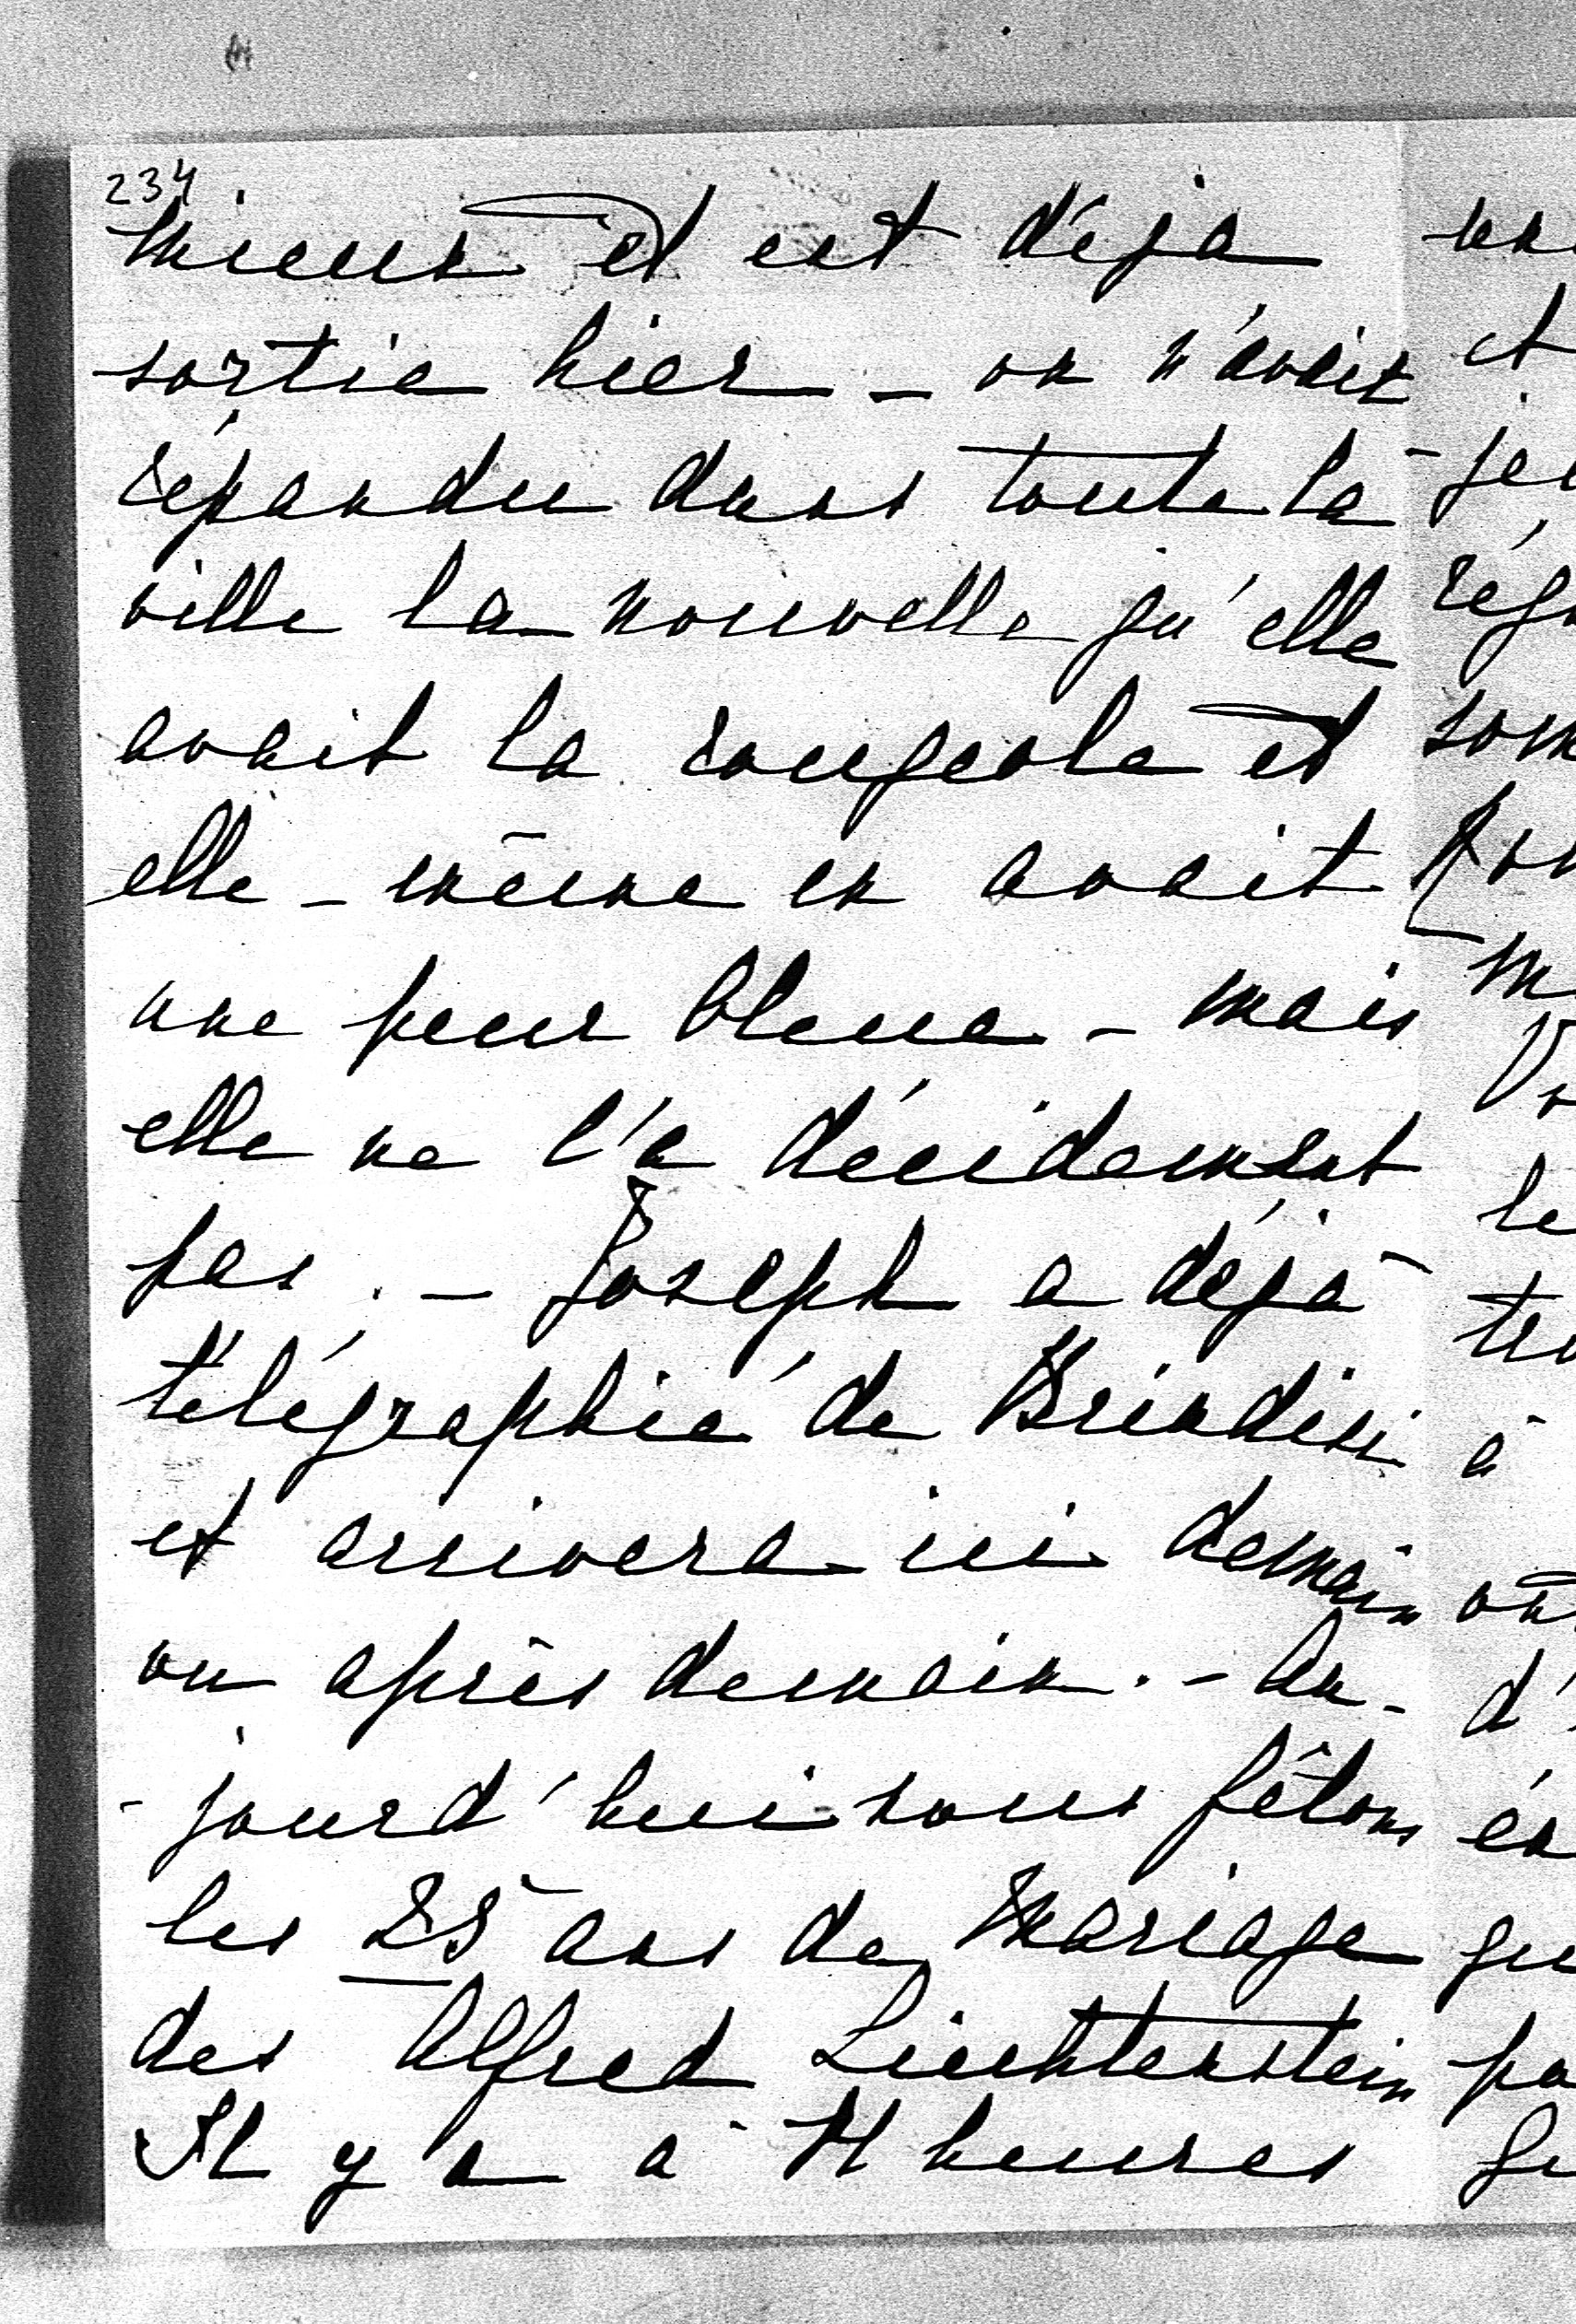 234
mieux et est déja
sortie hier – on n'avait
répandu dans toute la
ville la nouvelle qu'elle
avait la rougeole et
elle-même en avait
une peur bleue – mais
elle ne l'a décidement
pas. – Joseph a déjà
télégraphié de Brindisi
et arrivera ici demain
ou après demain. – Au-
-jourd'hui nous fêtons
les 25 ans de mariage
des Alfred Liechtenstein
Il y a à heures
et
à